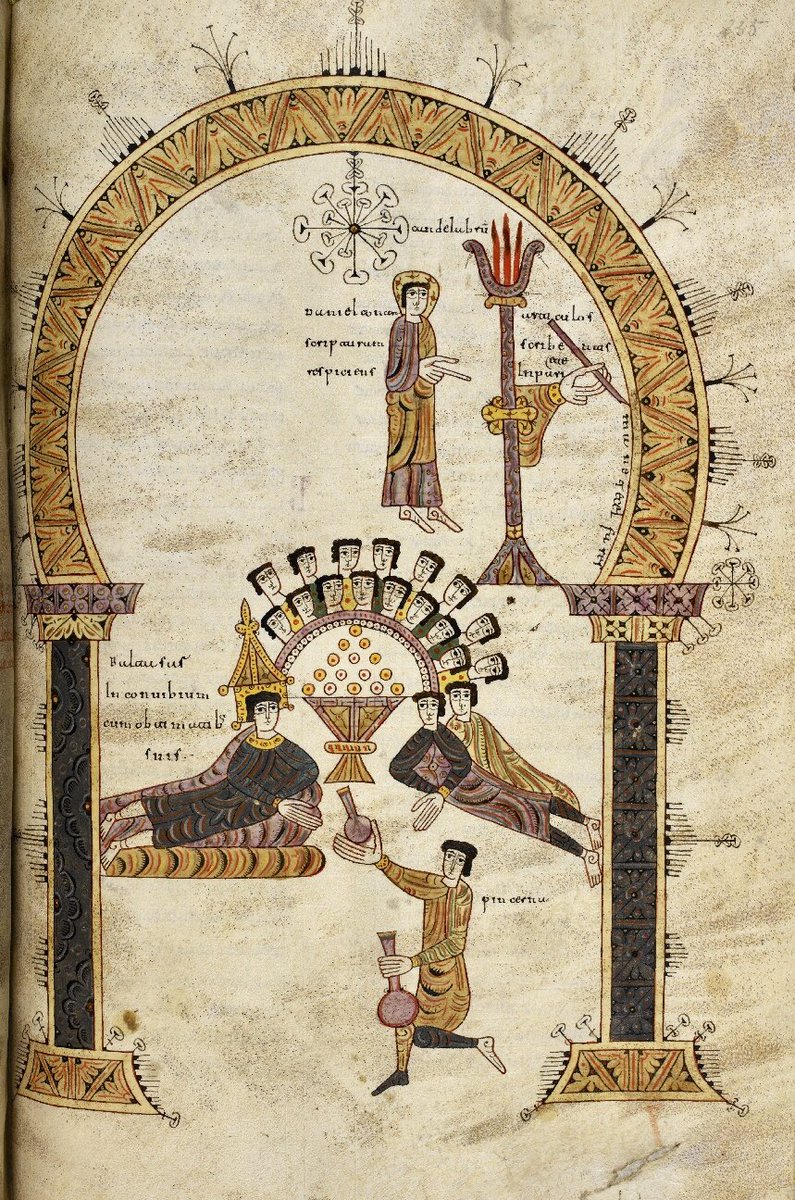 candelabrũ
Daniel
scripturam
respiciens
articulos
scribe ntis
In pari
ete
mane tecel fares
Baltasas
In conuibium
cum obtimatib
suis
pincerna